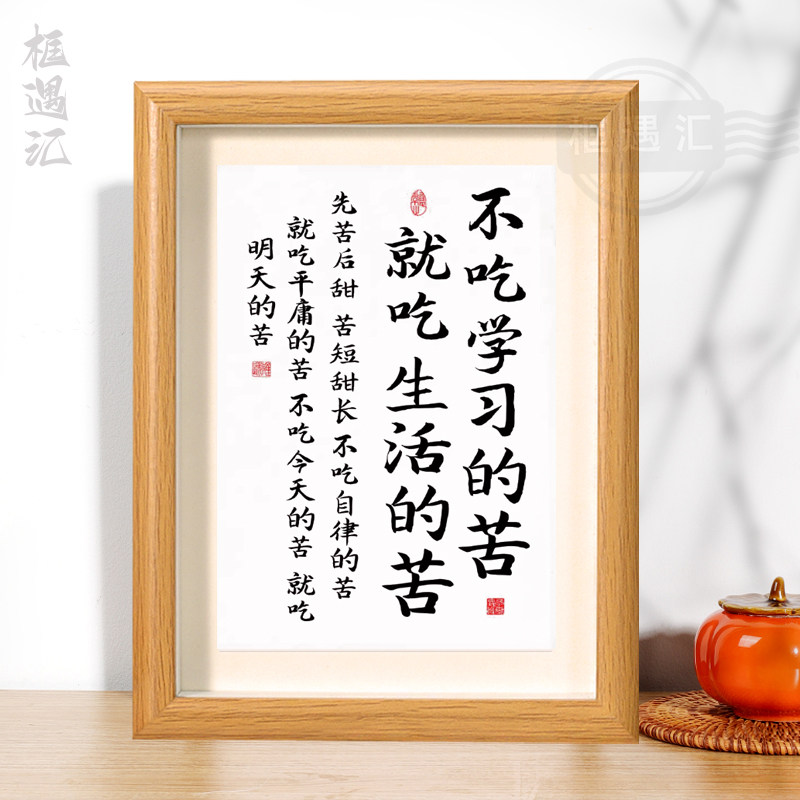 框遇汇
框遇汇
不吃学习的苦
就吃生活的苦
先苦后甜 苦短甜长 不吃自律的苦
就吃平庸的苦 不吃今天的苦 就吃
明天的苦